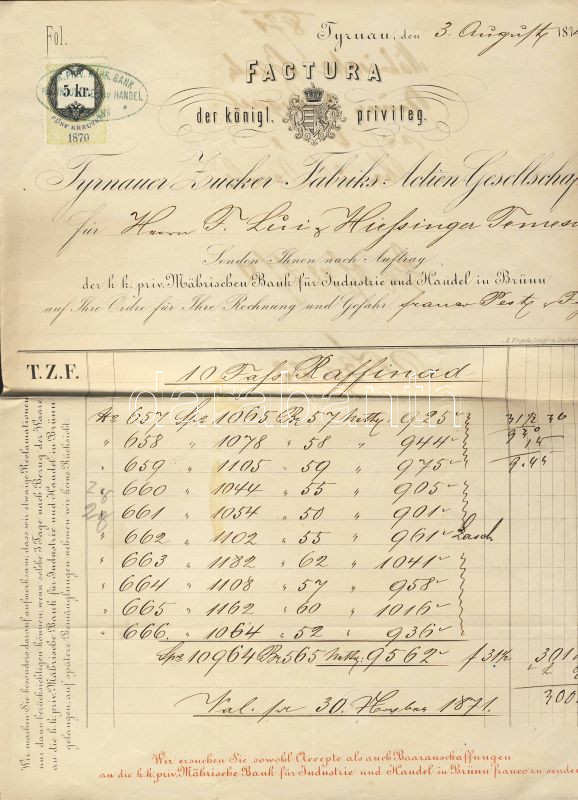 Fol.
Tyrnau, den 3. August 187
FACTURA
5 kr.
FÜNF KREUZER
1870
der königl. privileg.
Tyrnauer Zucker-Fabriks-Actien-Gesellschaf
für Herrn F. Temes
Senden Ihnen nach Auftrag
der k k. priv. Mährischen Bank für Industrie und Handel in Brünn
auf Ihre Ordre für Ihre Rechnung und Gefahr franco Pest
T.Z.F. 10 Fass Raffinad
darabanth
No 657 Spco 1065 Br 57 Netto 925
" 658 " 1078 " 58 " 944
" 659 " 1105 " 59 " 975
" 660 " 1044 " 55 " 905
" 661 " 1054 " 50 " 901
" 662 " 1102 " 55 " 961
" 663 " 1182 " 62 " 1041
" 664 " 1108 " 57 " 958
" 665 " 1162 " 60 " 1016
" 666. " 1064 " 52 " 936
Spco 10964 Br 565 Netto: 9562 f 31½ 301
300
Val. pr 30. 1871.
Wir machen Sie besonders darauf aufmerksam, dass wir etwaige Reclamationen
nur dann berücksichtigen können, wenn solche 3 Tage nach Bezug der Waare
an die k.k. priv. Mährische Bank für Industrie und Handel in Brünn
gelangen, auf spätere Bemänglungen nehmen wir keine Rücksicht.
Wir ersuchen Sie sowohl Accepte als auch Baaranschaffungen
an die k.k. priv. Mährische Bank für Industrie und Handel in Brünn franco zu senden